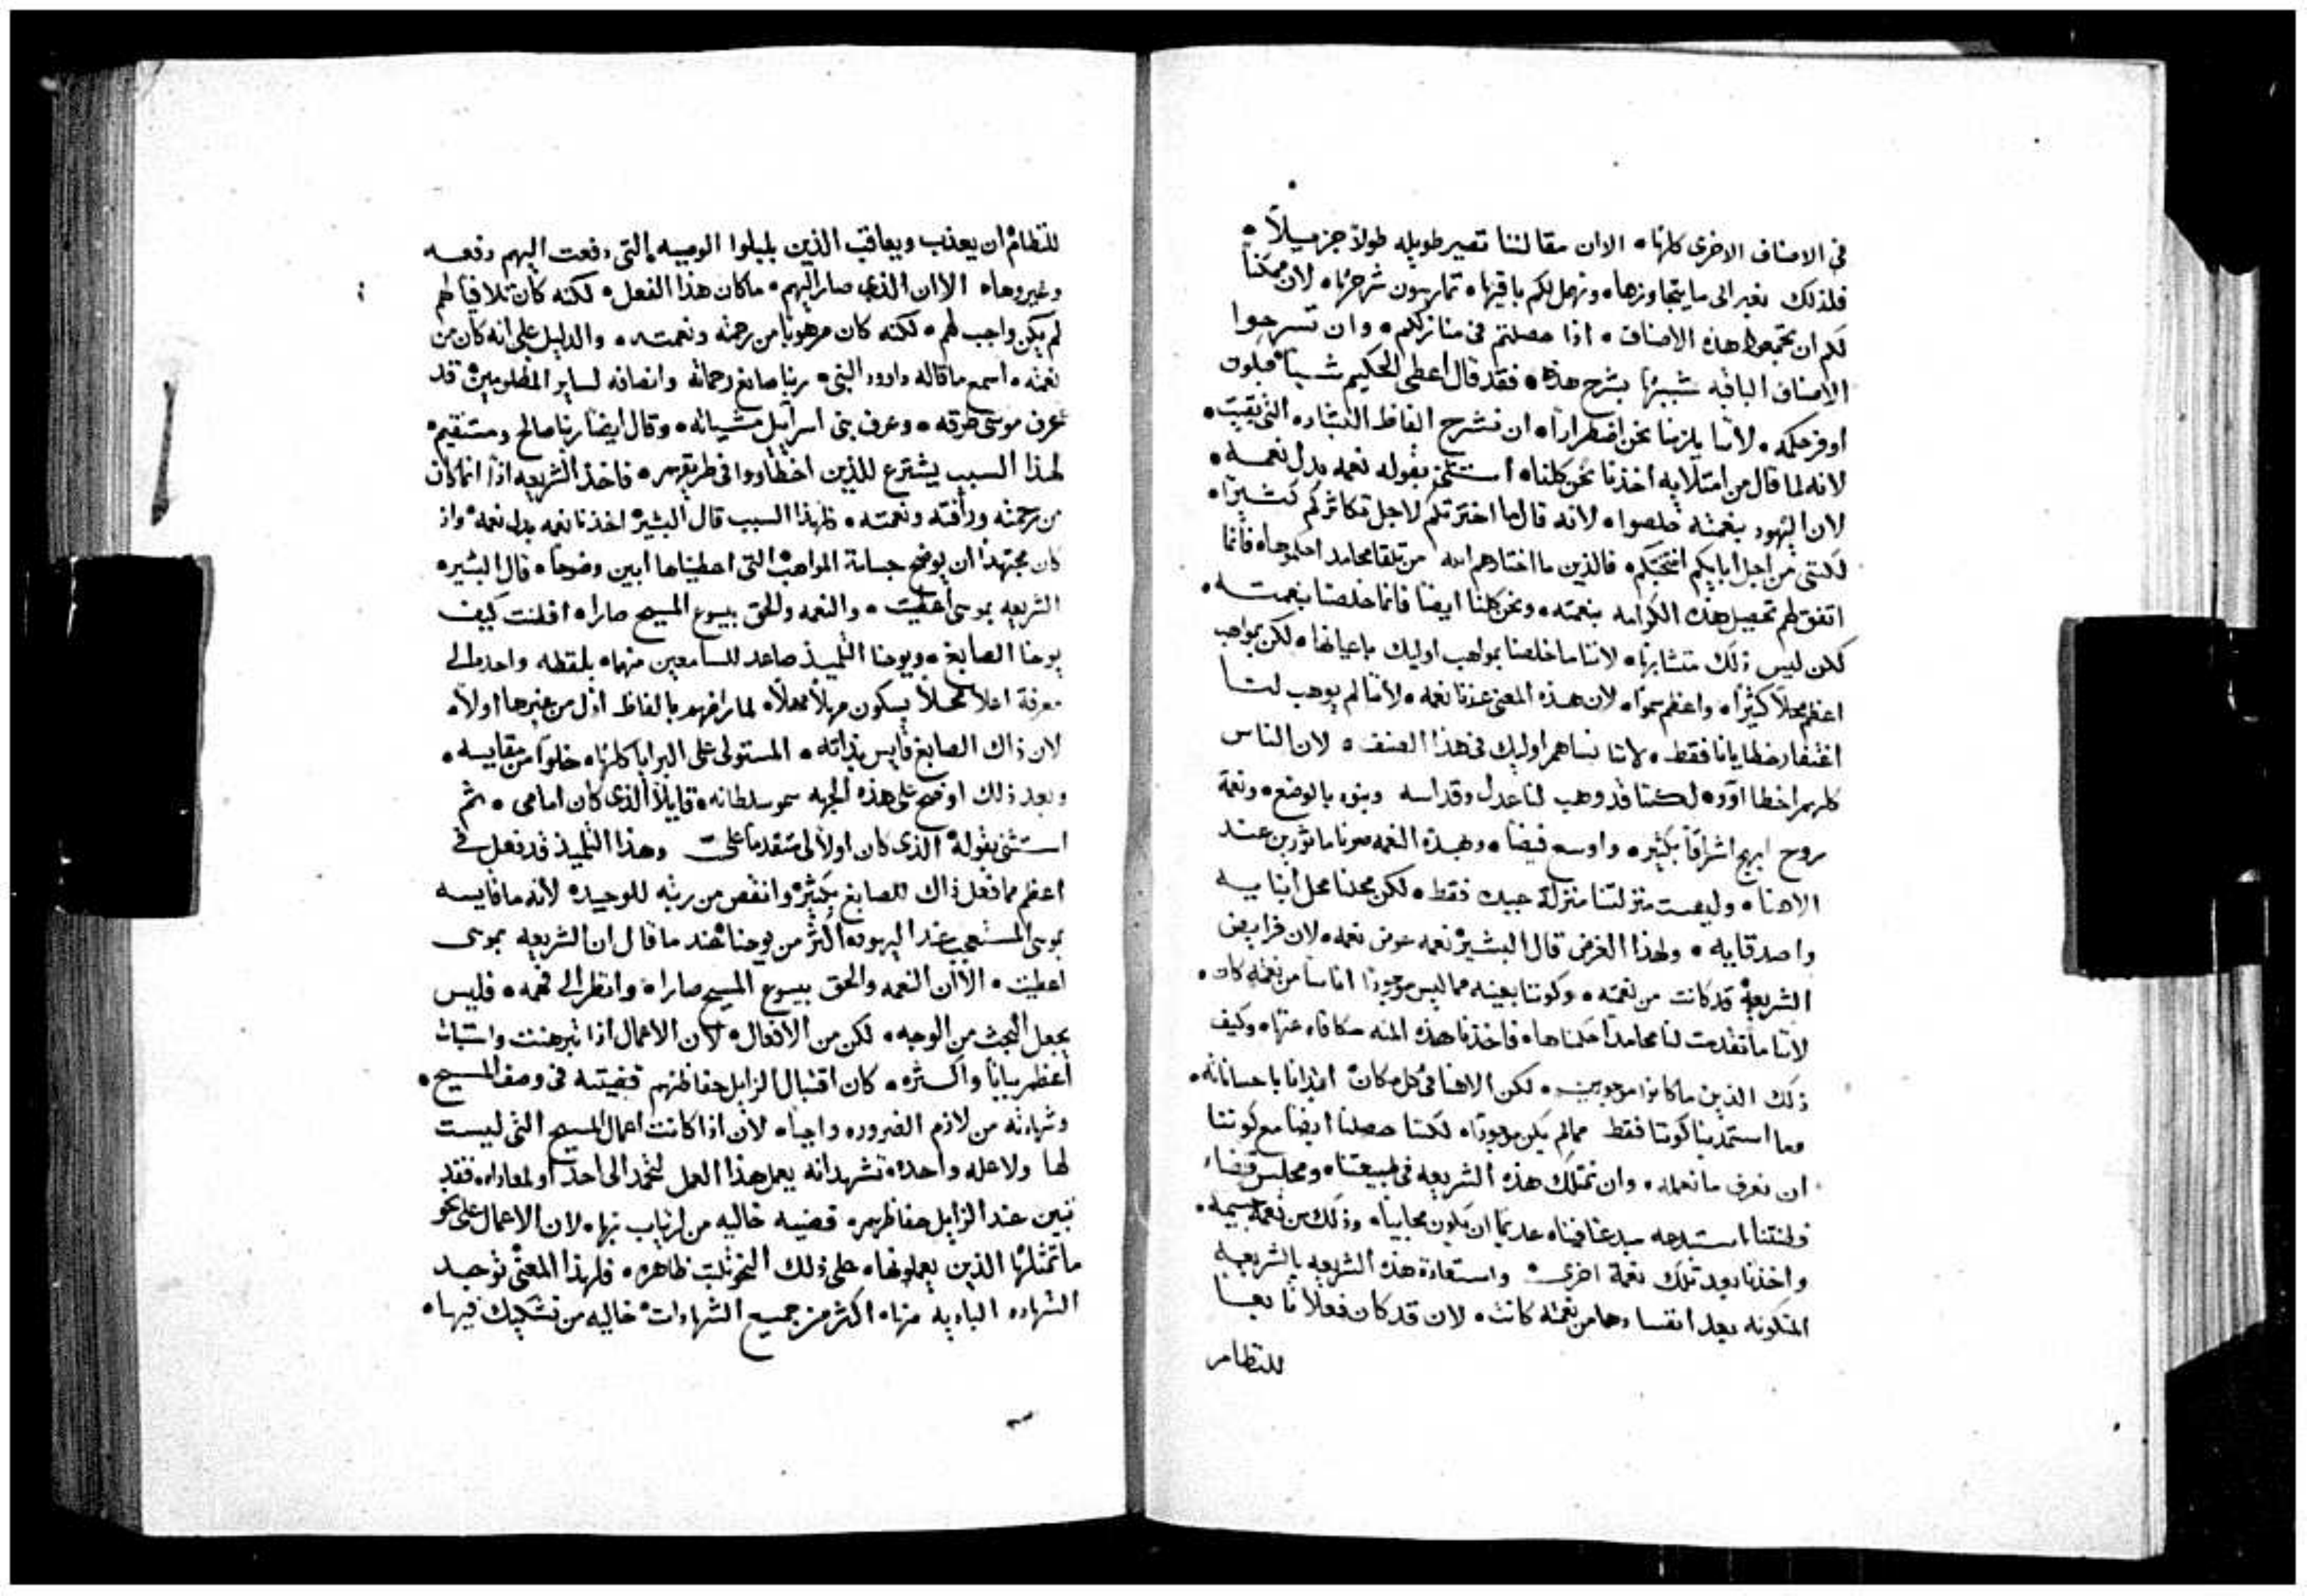 في الاصناف الاخرى كلها ٥ الا ان مقالتنا تصير طويله طولاً جزيلاً ٥
فلذلك نعبر الى ما يتجاوزها ٥ ونهمل لكم باقيها ٥ تمارسون شرحها ٥ لان ممكناً
لكم ان تجمعوا هذه الاصناف ٥ اذا حصلتم في منازلكم ٥ وان تشرحوا
الاصناف الباقيه شبيهاً بشرح هذه ٥ فقد قال اعطى الحكيم شيا فيكون
اوفر حكمه ٥ لاننا يلزمنا نحن اضطراراً ٥ ان نشرح الفاظ البشاره التي بقيت ٥
لانه لما قال من امتلايه اخذنا نحن كلنا ٥ استثنى بقوله نعمه بدل نعمه ٥
لان اليهود بنعمته خلصوا ٥ لانه قال ما اخترتكم لاجل تكاثركم كثيراً ٥
لكنني من اجل ابايكم انتخبتكم ٥ فالذين ما اختارهم الله من تلقا محامد احكموها ٥ فانما
اتفق لهم تحصيل هذه الكرامه بنعمته ٥ ونحن كلنا ايضاً فانما خلصنا بنعمته ٥
لكن ليس ذلك متشابها ٥ لاننا ما خلصنا بمواهب اوليك باعيانها ٥ لكن بمواهب
اعظم محلاً كثيراً ٥ واعظم سمواً ٥ لان هذه المعنى عندنا نعمه ٥ لاننا لم يوهب لنا
اغتفار خطايانا فقط ٥ لاننا نساهم اوليك في هذا الصنف ٥ لان الناس
كلهم اخطا اوه ٥ لكننا قد وهب لنا عدل وقداسه وبنوه بالوضع ٥ ونعمة
روح ابهج اشراقاً بكثير ٥ واوسع فيضاً ٥ وبهذه النعمه صرنا ماثورين عند
الاهنا ٥ وليست منزلتنا منزلة عبيد فقط ٥ لكن محلنا محل ابنايه
واصدقايه ٥ ولهذا الغرض قال البشير نعمه عوض نعمه ٥ لان فرايض
الشريعه قد كانت من نعمته ٥ وكوننا بعينه مما ليس موجوداً اناساً من نعمته كان ٥
لاننا ما تقدمت لنا محامد احكمناها ٥ فاخذنا هذه المنه مكافاه عنها ٥ وكيف
ذلك الذين ما كانوا موجودين ٥ لكن الاهنا في كل مكان ابتدانا باحساناته ٥
وما استمدينا كوننا فقط مما لم يكن موجوداً ٥ لكننا حصلنا ايضاً مع كوننا
ان نعرف ما نعمله ٥ وان نمتلك هذه الشريعه في طبيعتنا ٥ ومجلس قضاء
فطنتنا استبدعه مبدعنا فينا ٥ عديماً ان يكون محابياً ٥ وذلك من نعمة جسيمه ٥
واخذنا بعد تلك نعمة اخرى ٥ واستعادة هذه الشريعه بالشريعه
المتكونه بعد انفسادها من نعمته كانت ٥ لان قد كان فعلاً تابعاً
للنظام
للنظام ان يعذب ويعاقب الذين لم يقبلوا الوصيه التي دفعت اليهم دفعه
وغيروها ٥ الا ان الذي صار اليهم ٥ ما كان هذا الفعل ٥ لكنه كان تلافياً لهم
لم يكن واجب لهم ٥ لكنه كان مرهوناً من رحمته ونعمته ٥ والدليل على انه كان من
نعمته ٥ اسمع ما قاله داوود النبي ٥ ربنا صانع رحماته وانصافه لساير المظلومين ٥ قد
عرف موسى طرقه ٥ وعرف بني اسرايل مشياته ٥ وقال ايضاً ربنا صالح ومستقيم ٥
لهذا السبب يشترع للذين اخطاووا في طريقهم ٥ فاخذ الشريعه اذا انما كان
من رحمته ورافته ونعمته ٥ فلهذا السبب قال البشير اخذنا نعمه بدل نعمه ٥ واذ
كان مجتهداً ان يوضح جسامة المواهب التي اعطيناها ابين وضوحاً ٥ قال البشير ٥
الشريعه بموسى اعطيت ٥ والنعمه والحق بيسوع المسيح صارا ٥ افلنت كيف
يوحنا الصابغ ٥ ويوحنا التلميذ صاعد للسامعين منهما ٥ بلفظه واحده الى
معرفة اعلا محلاً بسكون مهلاً مهلاً ٥ لما راضهم بالفاظ اذل من غيرها اولاً ٥
لان ذاك الصابغ قايس بذاته ٥ المستولى على البرايا كلها ٥ خلواً من مقايسه ٥
وبعد ذلك اوضح على هذه الجهه سمو سلطانه ٥ قايلاً الذي كان امامي ٥ ثم
استثنى بقوله الذي كان اولاً لي متقدماً علي وهذا التلميذ قد فعل في
اعظم مما فعل ذاك الصابغ بكثير ٥ وانقص من رتبه للوحيد ٥ لانه ما قايسه
بموسى المستعجب عند اليهود ٥ اكثر من يوحنا ٥ عند ما قال ان الشريعه بموسى
اعطيت ٥ الا ان النعمه والحق بيسوع المسيح صارا ٥ وانظر الى فهمه ٥ فليس
يجعل البحث من الوجه ٥ لكن من الافعال ٥ لان الاعمال اذا تبرهنت واستبان
اعظم بياناً واكثره ٥ كان اقتبال الزايل حفاظهم قضيته في وصف المسيح ٥
وشهادته من لازم الضروره واجباً ٥ لان اذا كانت اعمال المسيح التي ليست
لها ولا عله واحده ٥ تشهد انه يعمل هذا العمل لتحمد الى احد او لمعاداه ٥ فقد
تبين عند الزايل حفاظهم ٥ قضيه خاليه من ارتياب بها ٥ لان الاعمال على نحو
ما تمثلها الذين يعملونها ٥ على ذلك النحو ثلبت ظاهره ٥ فلهذا المعنى توجد
الشهاده الباديه منها ٥ اكثر من جميع الشهادات ٥ خاليه من تشكيك فيها ٥